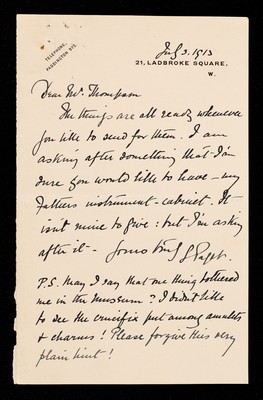 July 3. 1913
TELEPHONE,
PADDINGTON
21, LADBROKE SQUARE,
W.
Dear Mr. Thompson
The things are all ready whenever
you like to send for them. I am
asking after something that I'm
sure you would like to have – my
Father's instrument-cabinet. It
isn't mine to give: but I'm asking
after it – Yours truly S Paget.
P.S. May I say that one thing bothered
me in the museum? I didn't like
to see the crucifix put among amulets
& charms! Please forgive this very
plain hint!